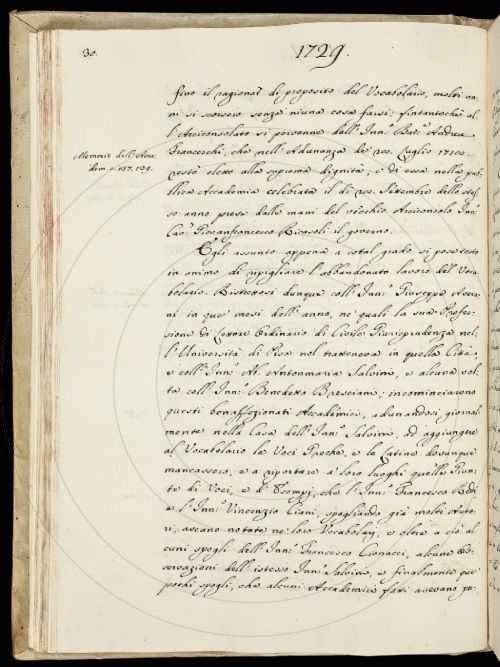 30.
1729.
fino il ragionar di proposito del Vocabolario, molti an-
ni si scorsero senza niuna cosa farsi; fintantochè al-
l'Arciconsolato si pervenne dell'Inn.º Bali Andrea
Memorie dell'Acca-
dem. c. 137. 139.
Franceschi, che nell'Adunanza de' 20. Luglio
restò eletto alla suprema dignità, e di essa nella pub-
blica Accademia celebrata il dì Settembre dello stes-
so anno prese dalle mani del vecchio Arciconsolo Inn.º
Cav. Piovanfrancesco Ricasoli il governo.
Egli assunto appena a cotal grado si pose tosto
in animo di ripigliare l'abbandonato lavoro del Voca-
bolario. Ristrettosi dunque coll'Inn.º Giuseppe Avera-
ni in que' mesi dell'anno, ne' quali la sua Profes-
sione di Lettore Ordinario di Civile Giurisprudenza nel-
l'Università di Pisa nol tratteneva in quella Città,
e coll'Inn.º Ab. Antonmaria Salvini, e alcuna vol-
ta coll'Inn.º Benedetto Bresciani; incominciarono
questi benaffezionati Accademici, adunandosi giornal-
mente nella Casa dell'Inn.º Salvini, ad aggiugnere
al Vocabolario le Voci Greche, e le Latine dovunque
mancassero, e a riportare a' loro luoghi quelle Giun-
te di Voci, e d'Esempj, che l'Inn.º Francesco Redi
e l'Inn.º Vincenzio Ciani, spogliando già molti Auto-
ri, aveano notate ne' loro Vocabolarj, e oltre a ciò al-
cuni spogli dell'Inn.º Francesco Cionacci, alcune Os-
servazioni dell'istesso Inn.º Salvini, e finalmente que'
pochi spogli, che alcuni Accademici fatti avevano pu-